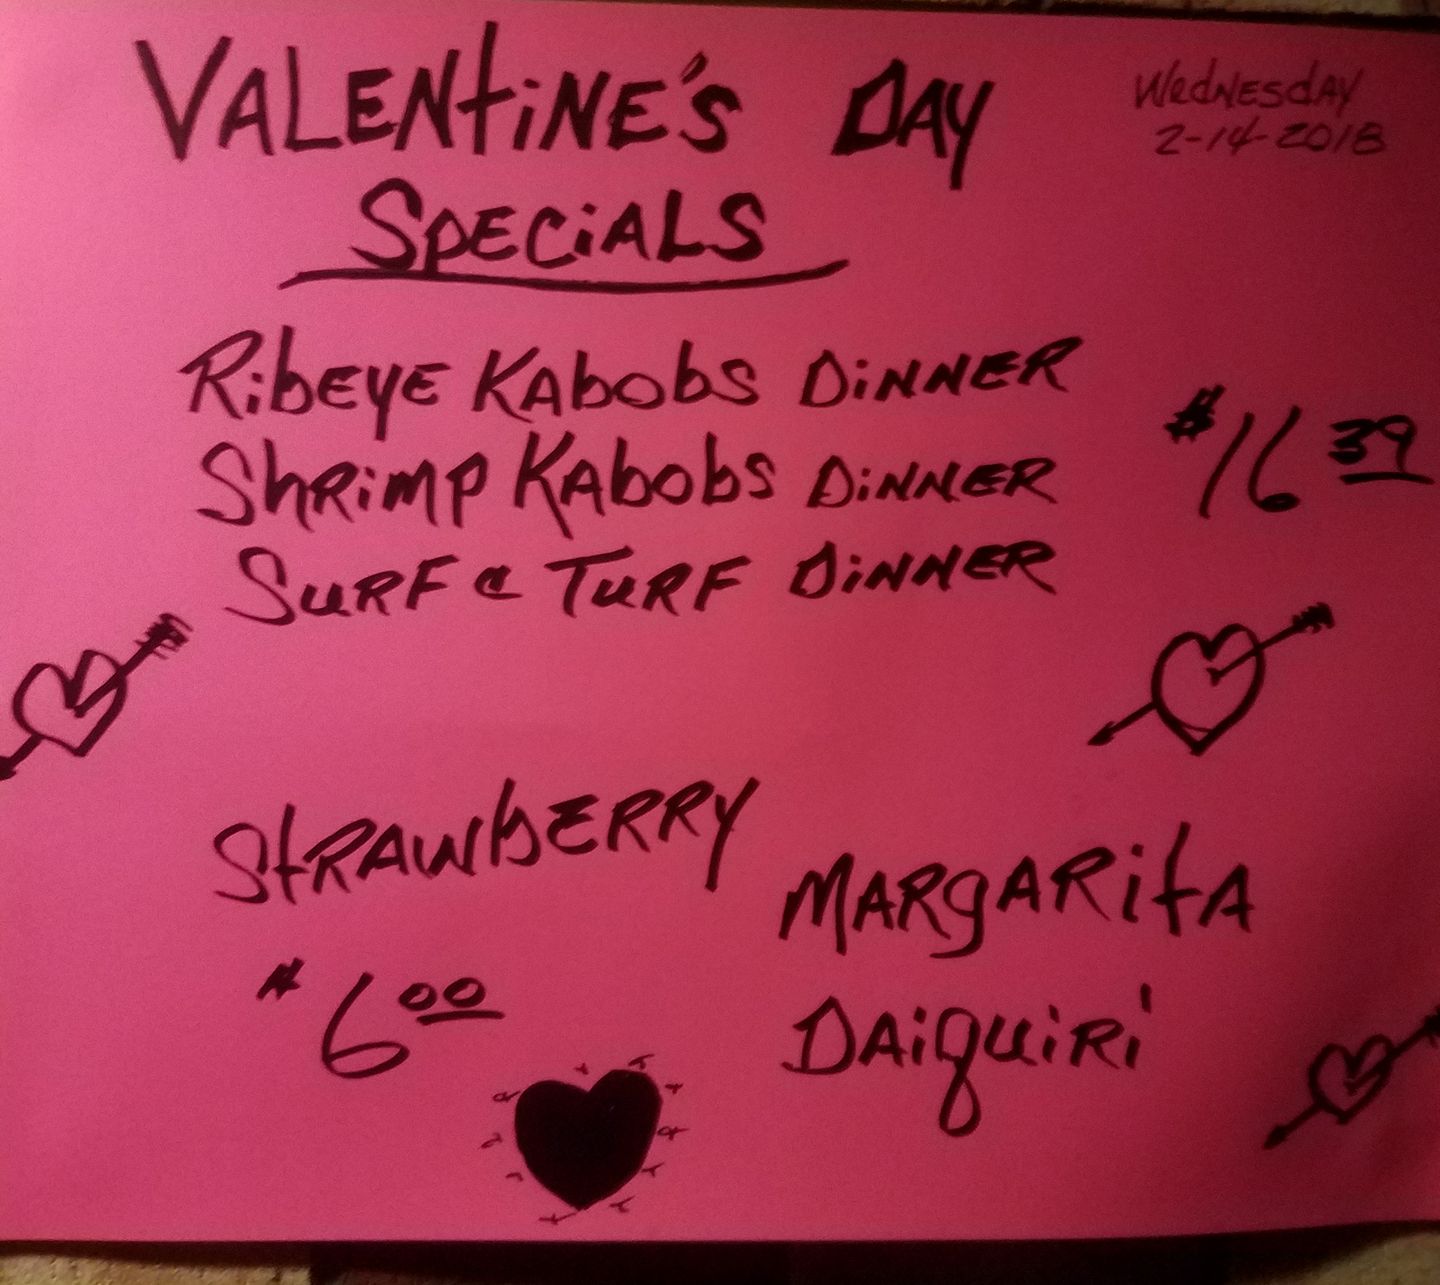 VALENtiNE'S DAY
WEdNESdAY
2-14-2018
SPECiALS
RibEYE KAbobS DiNNER
$16 39
ShRiMP KAbobS DiNNER
SURF & TURF DiNNER
StRAWbERRY
MARgARitA
$6 00
DAiquiRi